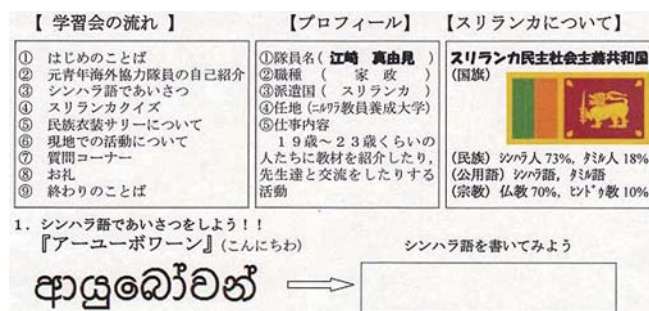 【 学習会の流れ 】
① はじめのことば
② 元青年海外協力隊員の自己紹介
③ シンハラ語であいさつ
④ スリランカクイズ
⑤ 民族衣装サリーについて
⑥ 現地での活動について
⑦ 質問コーナー
⑧ お礼
⑨ 終わりのことば
【プロフィール】
①隊員名( 江崎 真由見 )
②職種 ( 家 政 )
③派遣国 ( スリランカ )
④任地 (ニルワラ教員養成大学)
⑤仕事内容
19歳～23歳くらいの
人たちに教材を紹介したり,
先生達と交流をしたりする
活動
【スリランカについて】
スリランカ民主社会主義共和国
(国旗)
(民族) シンハラ人 73%, タミル人 18%
(公用語) シンハラ語, タミル語
(宗教) 仏教 70%, ヒンドゥ教 10%
1. シンハラ語であいさつをしよう!!
『アーユーボワーン』(こんにちわ)
シンハラ語を書いてみよう
ආයුබෝවන්